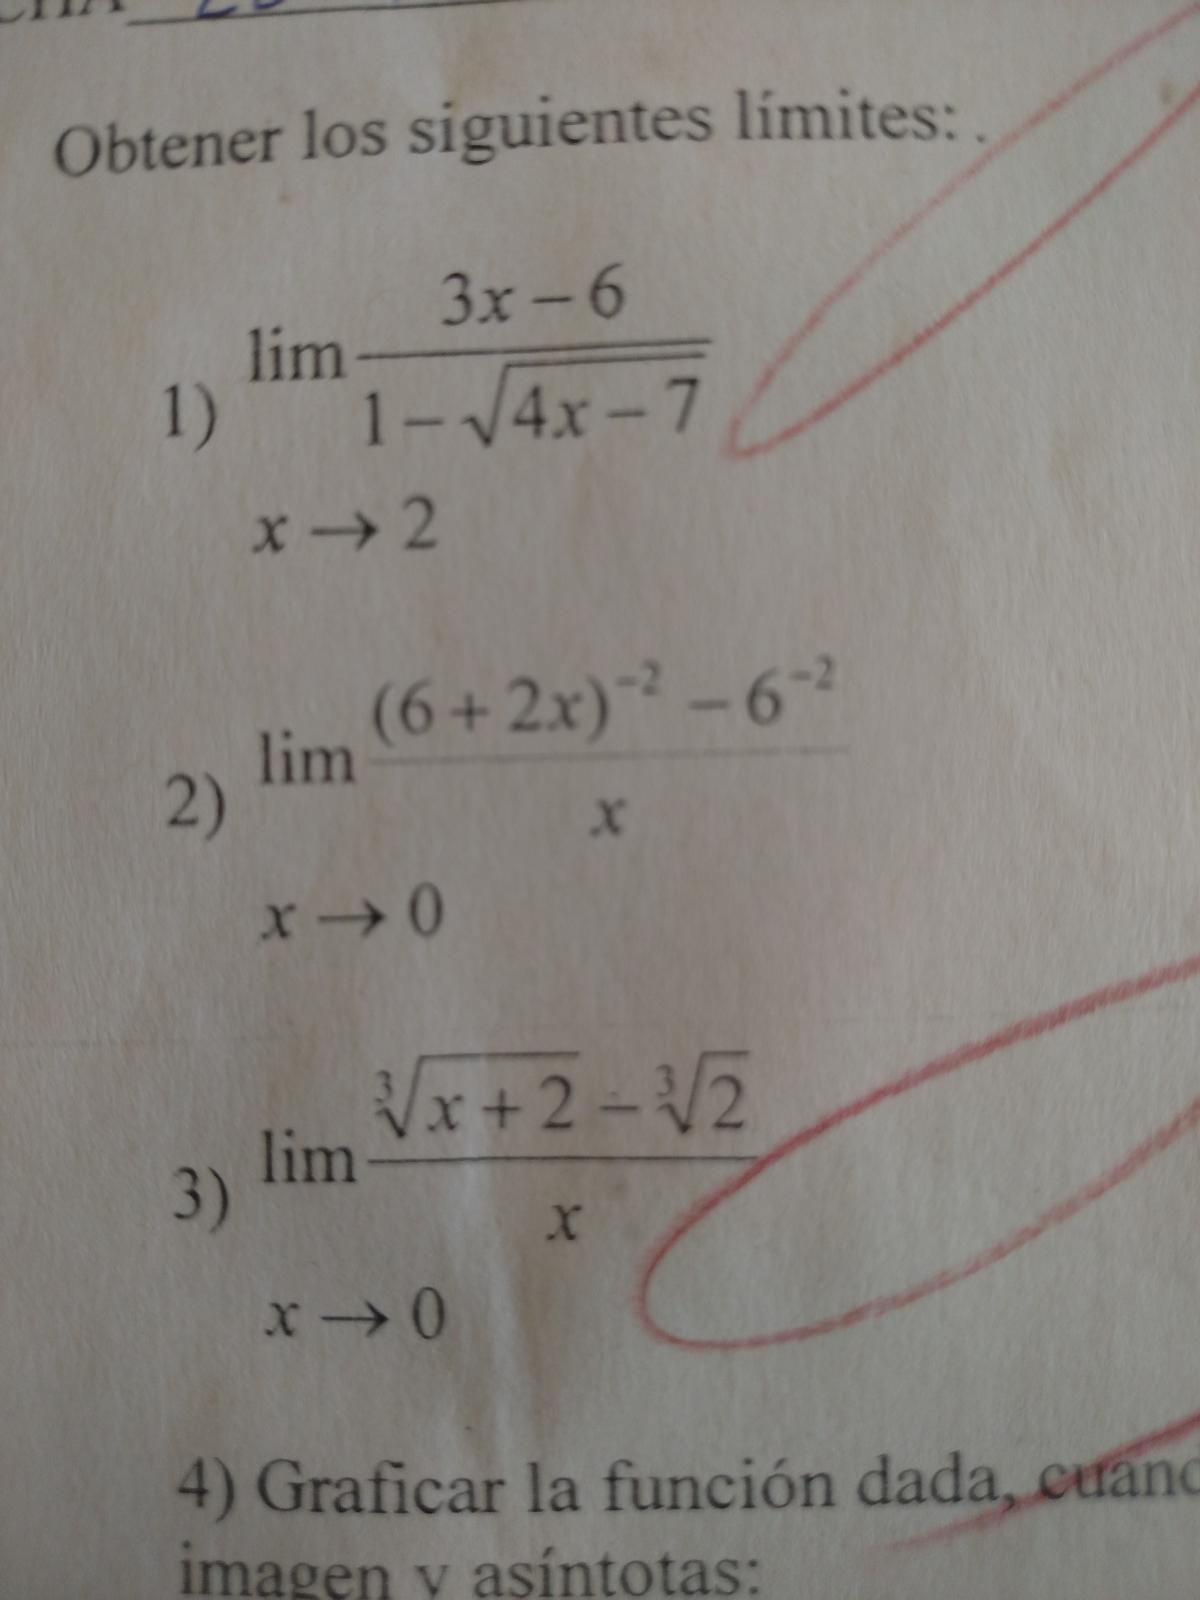 Obtener los siguientes límites: .
1) lim (3x − 6) / (1 − √(4x − 7))
x → 2
2) lim ((6 + 2x)⁻² − 6⁻²) / x
x → 0
3) lim (∛(x + 2) − ∛2) / x
x → 0
4) Graficar la función dada,
imagen y asíntotas: